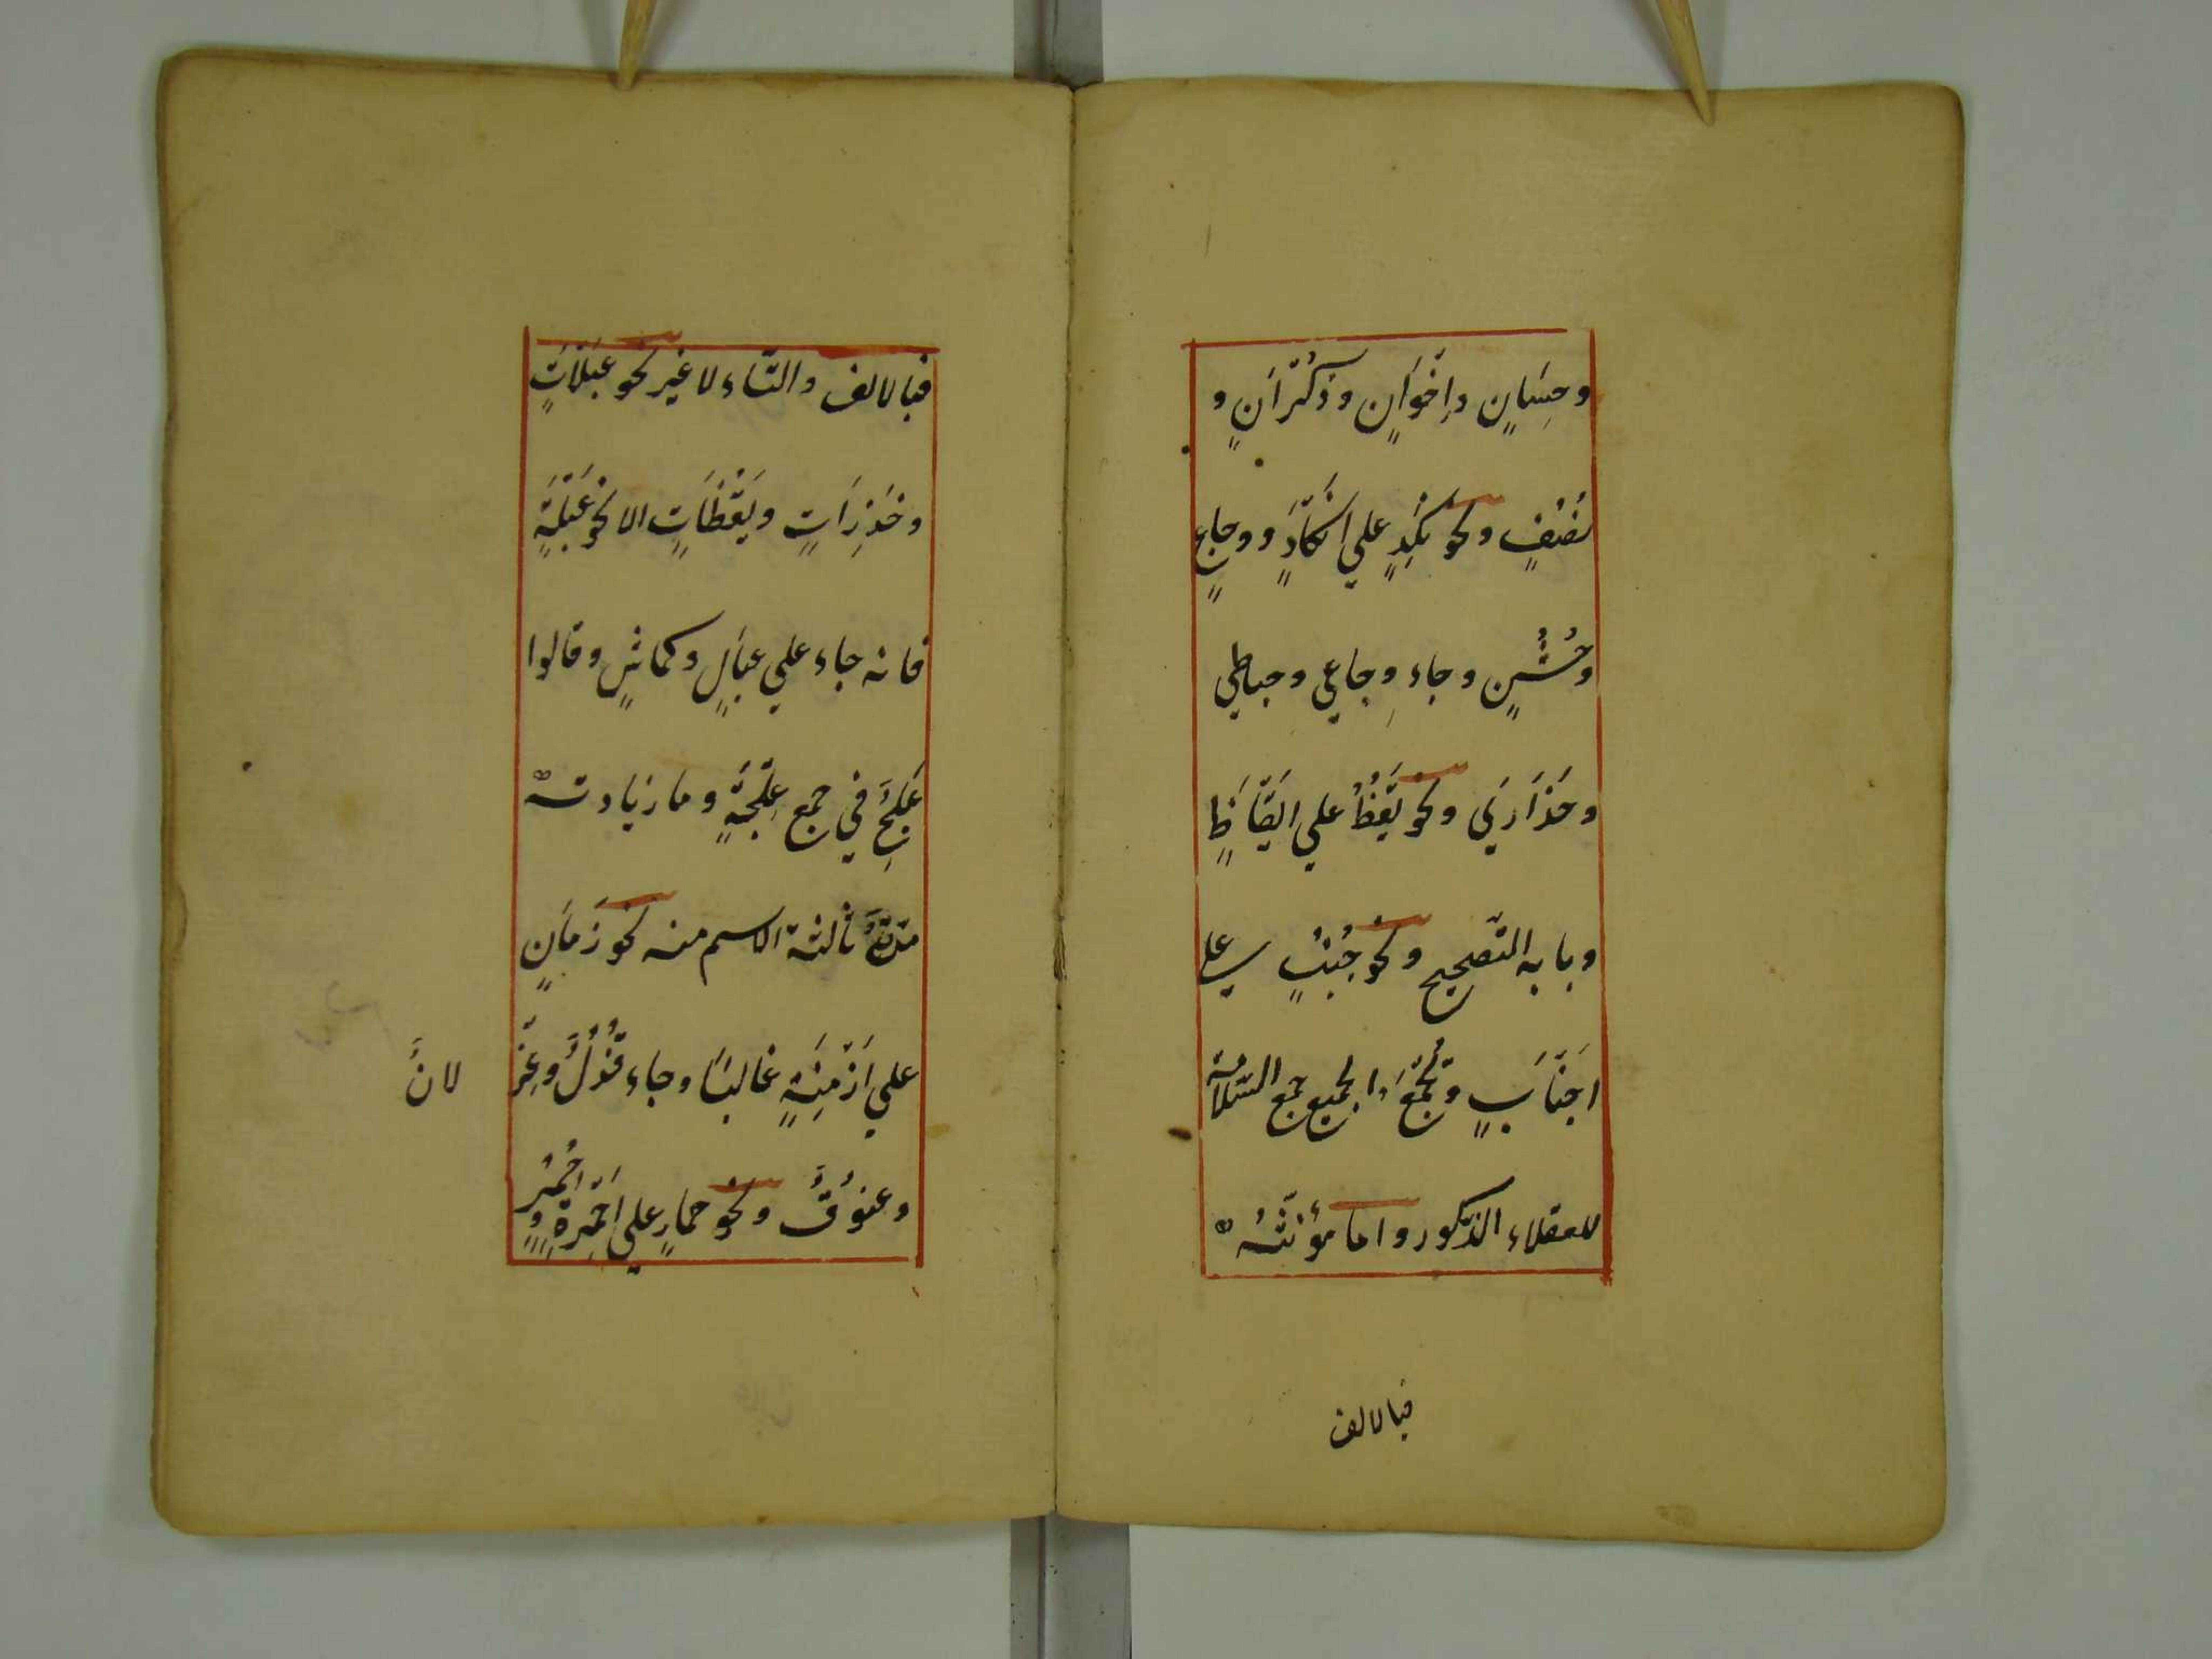 وحِسَانٍ وإِخْوَانٍ وذُكْرَانٍ و
نُصُفٍ ونحو نَكِدٍ علي اَنْكَادٍ ووجاعٍ
وخُشُنٍ وجاء وِجاعي وحباطي
وحَذَارَي ونحو يَقُظٌ علي اَيْقَاظٍ
وبابه التّصحيح ونحو جُنُبٍ علي
اَجْنَابٍ وتُجْمَعُ الجميع جمع السّلامة
للعقلاء الذّكور واما مؤنّثهُ
فبالالف
فبالالف والتّاء لا غير نحو عَبْلَاتٍ
وحَذِرَاتٍ ويَقُظَاتٍ الا نحو عَبْلَةٍ
فانه جاء علي عِبَالٍ وكماشٍ وقالوا
عِلَجٌ في جمع عِلْجَةٍ وما زيادته
مدّةٌ ثالثة الاسم منه نحو زَمَانٍ
علي اَزْمِنَةٍ غالبًا وجاء قُذُلٌ وغِزْ
لانٌ
وعنوُقٌ ونحو حمارٍ علي اَحْمِرَةٍ وحُمُرٍ